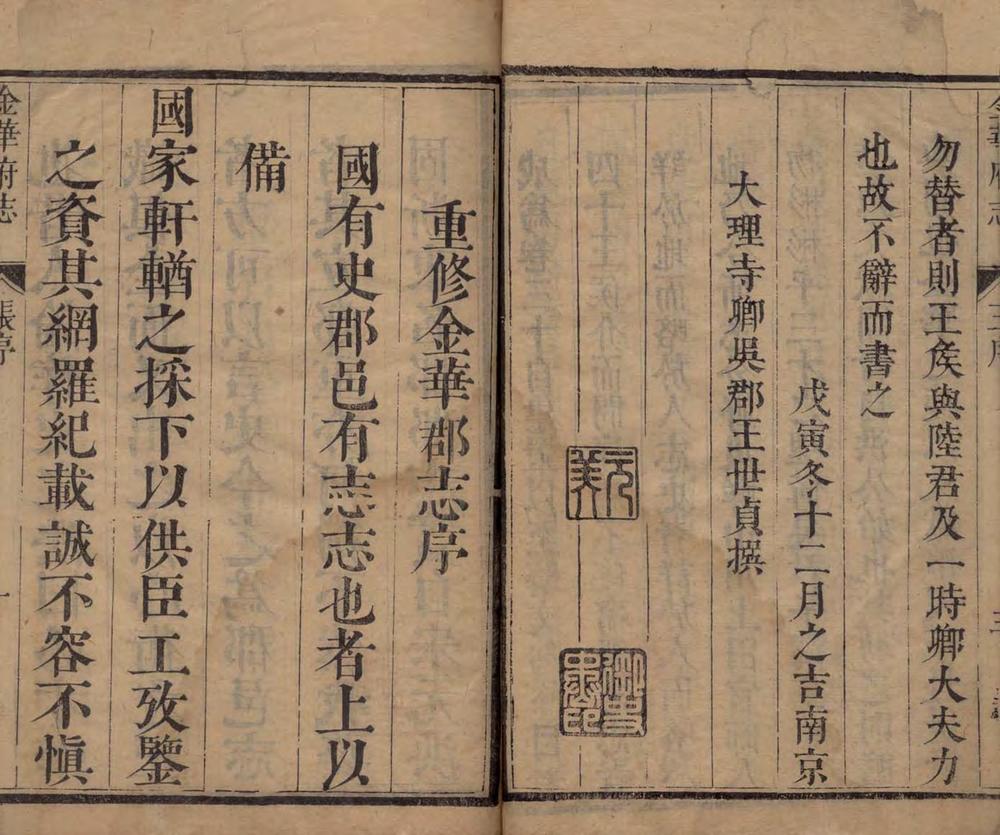 勿替者則王矦與陸君及一時卿大夫力
也故不辭而書之
戊寅冬十二月之吉南京
大理寺卿吳郡王世貞撰
元美
重修金華郡志序
國有史郡邑有志志也者上以
備
國家軒輶之採下以供臣工攷鑒
之資其網羅紀載誠不容不慎
金華府志
張序
一